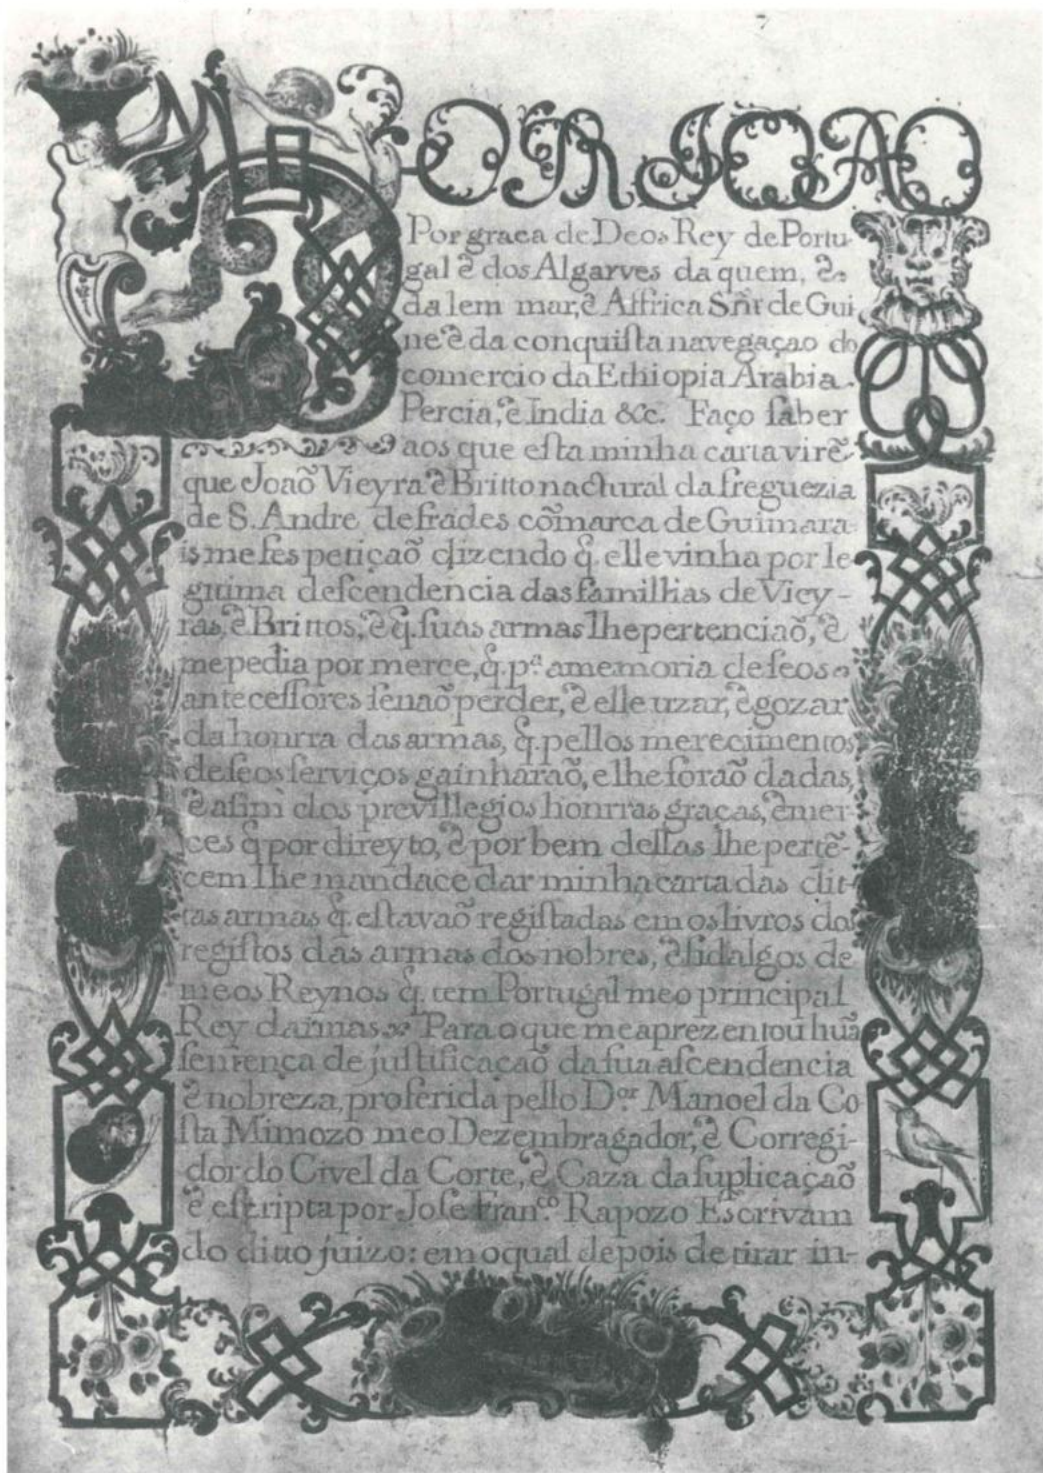 DOM JOAO
Por graca de Deos Rey de Portu-
gal ẽ dos Algarves da quem, ẽ
da lem mar, ẽ Affrica Sñr de Gui
ne ẽ da conquiſta navegaçao do
comercio da Ethiopia Arabia
Percia, ẽ India &c. Faço ſaber
aos que eſta minha carta virẽ
que Joaõ Vieyra ẽ Britto nactural da freguezia
de S. Andre de frades cõmarca de Guimara
is me fes petiçaõ dizendo q̃. elle vinha por le
gitima deſcendencia das familhas de Viey-
ras, ẽ Brittos, ẽ q̃. ſuas armas lhe pertenciaõ, ẽ
me pedia por merce, q̃. pª. a memoria de ſeos
anteceſſores ſe naõ perder, ẽ elle uzar, ẽ gozar
da honrra das armas, q̃. pellos merecimentos
de ſeos ſerviços gainharaõ, e lhe foraõ dadas,
ẽ aſim dos previllegios honrras graças, ẽ mer-
ces q̃ por direyto, ẽ por bem dellas lhe pertẽ-
cem lhe mandace dar minha carta das dit-
tas armas q̃. eſtavaõ regiſtadas em os livros dos
regiſtos das armas dos nobres, ẽ fidalgos de
meos Reynos q̃. tem Portugal meo principal
Rey darmas Para o que me aprezentou huã
ſentença de juſtificaçaõ da ſua aſcendencia
ẽ nobreza, proferida pello D.ᵒʳ Manoel da Co
ſta Mimozo meo Dezembragador, ẽ Corregi-
dor do Civel da Corte, ẽ Caza da ſuplicaçaõ
ẽ eſcripta por Joſe Fran.ᶜᵒ Rapozo Eſcrivam
do ditto juizo: em o qual depois de tirar in-